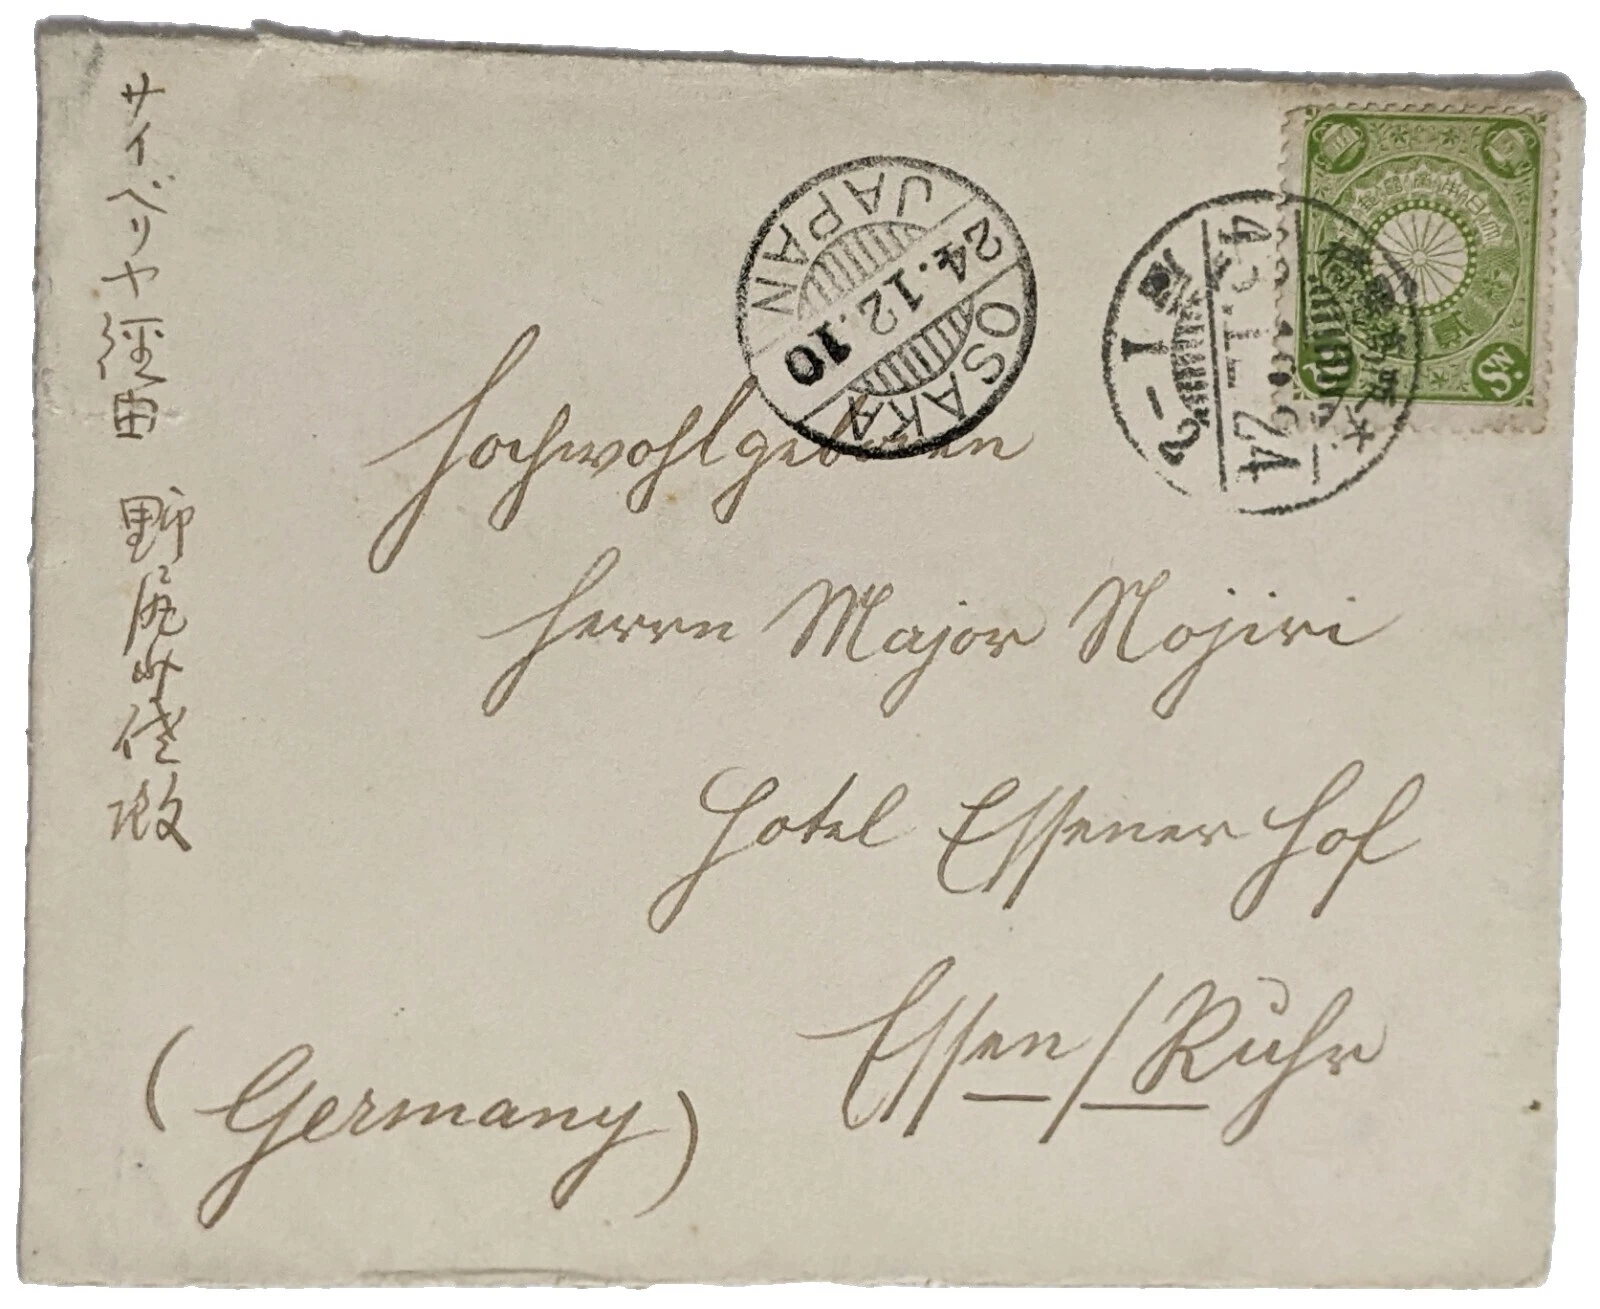 サイベリヤ經由 野尻少佐殿
OSAKA
24.12.10
JAPAN
Hochwohlgeboren
Herrn Major Nojiri
Hotel Essener Hof
Essen/Ruhr
(Germany)